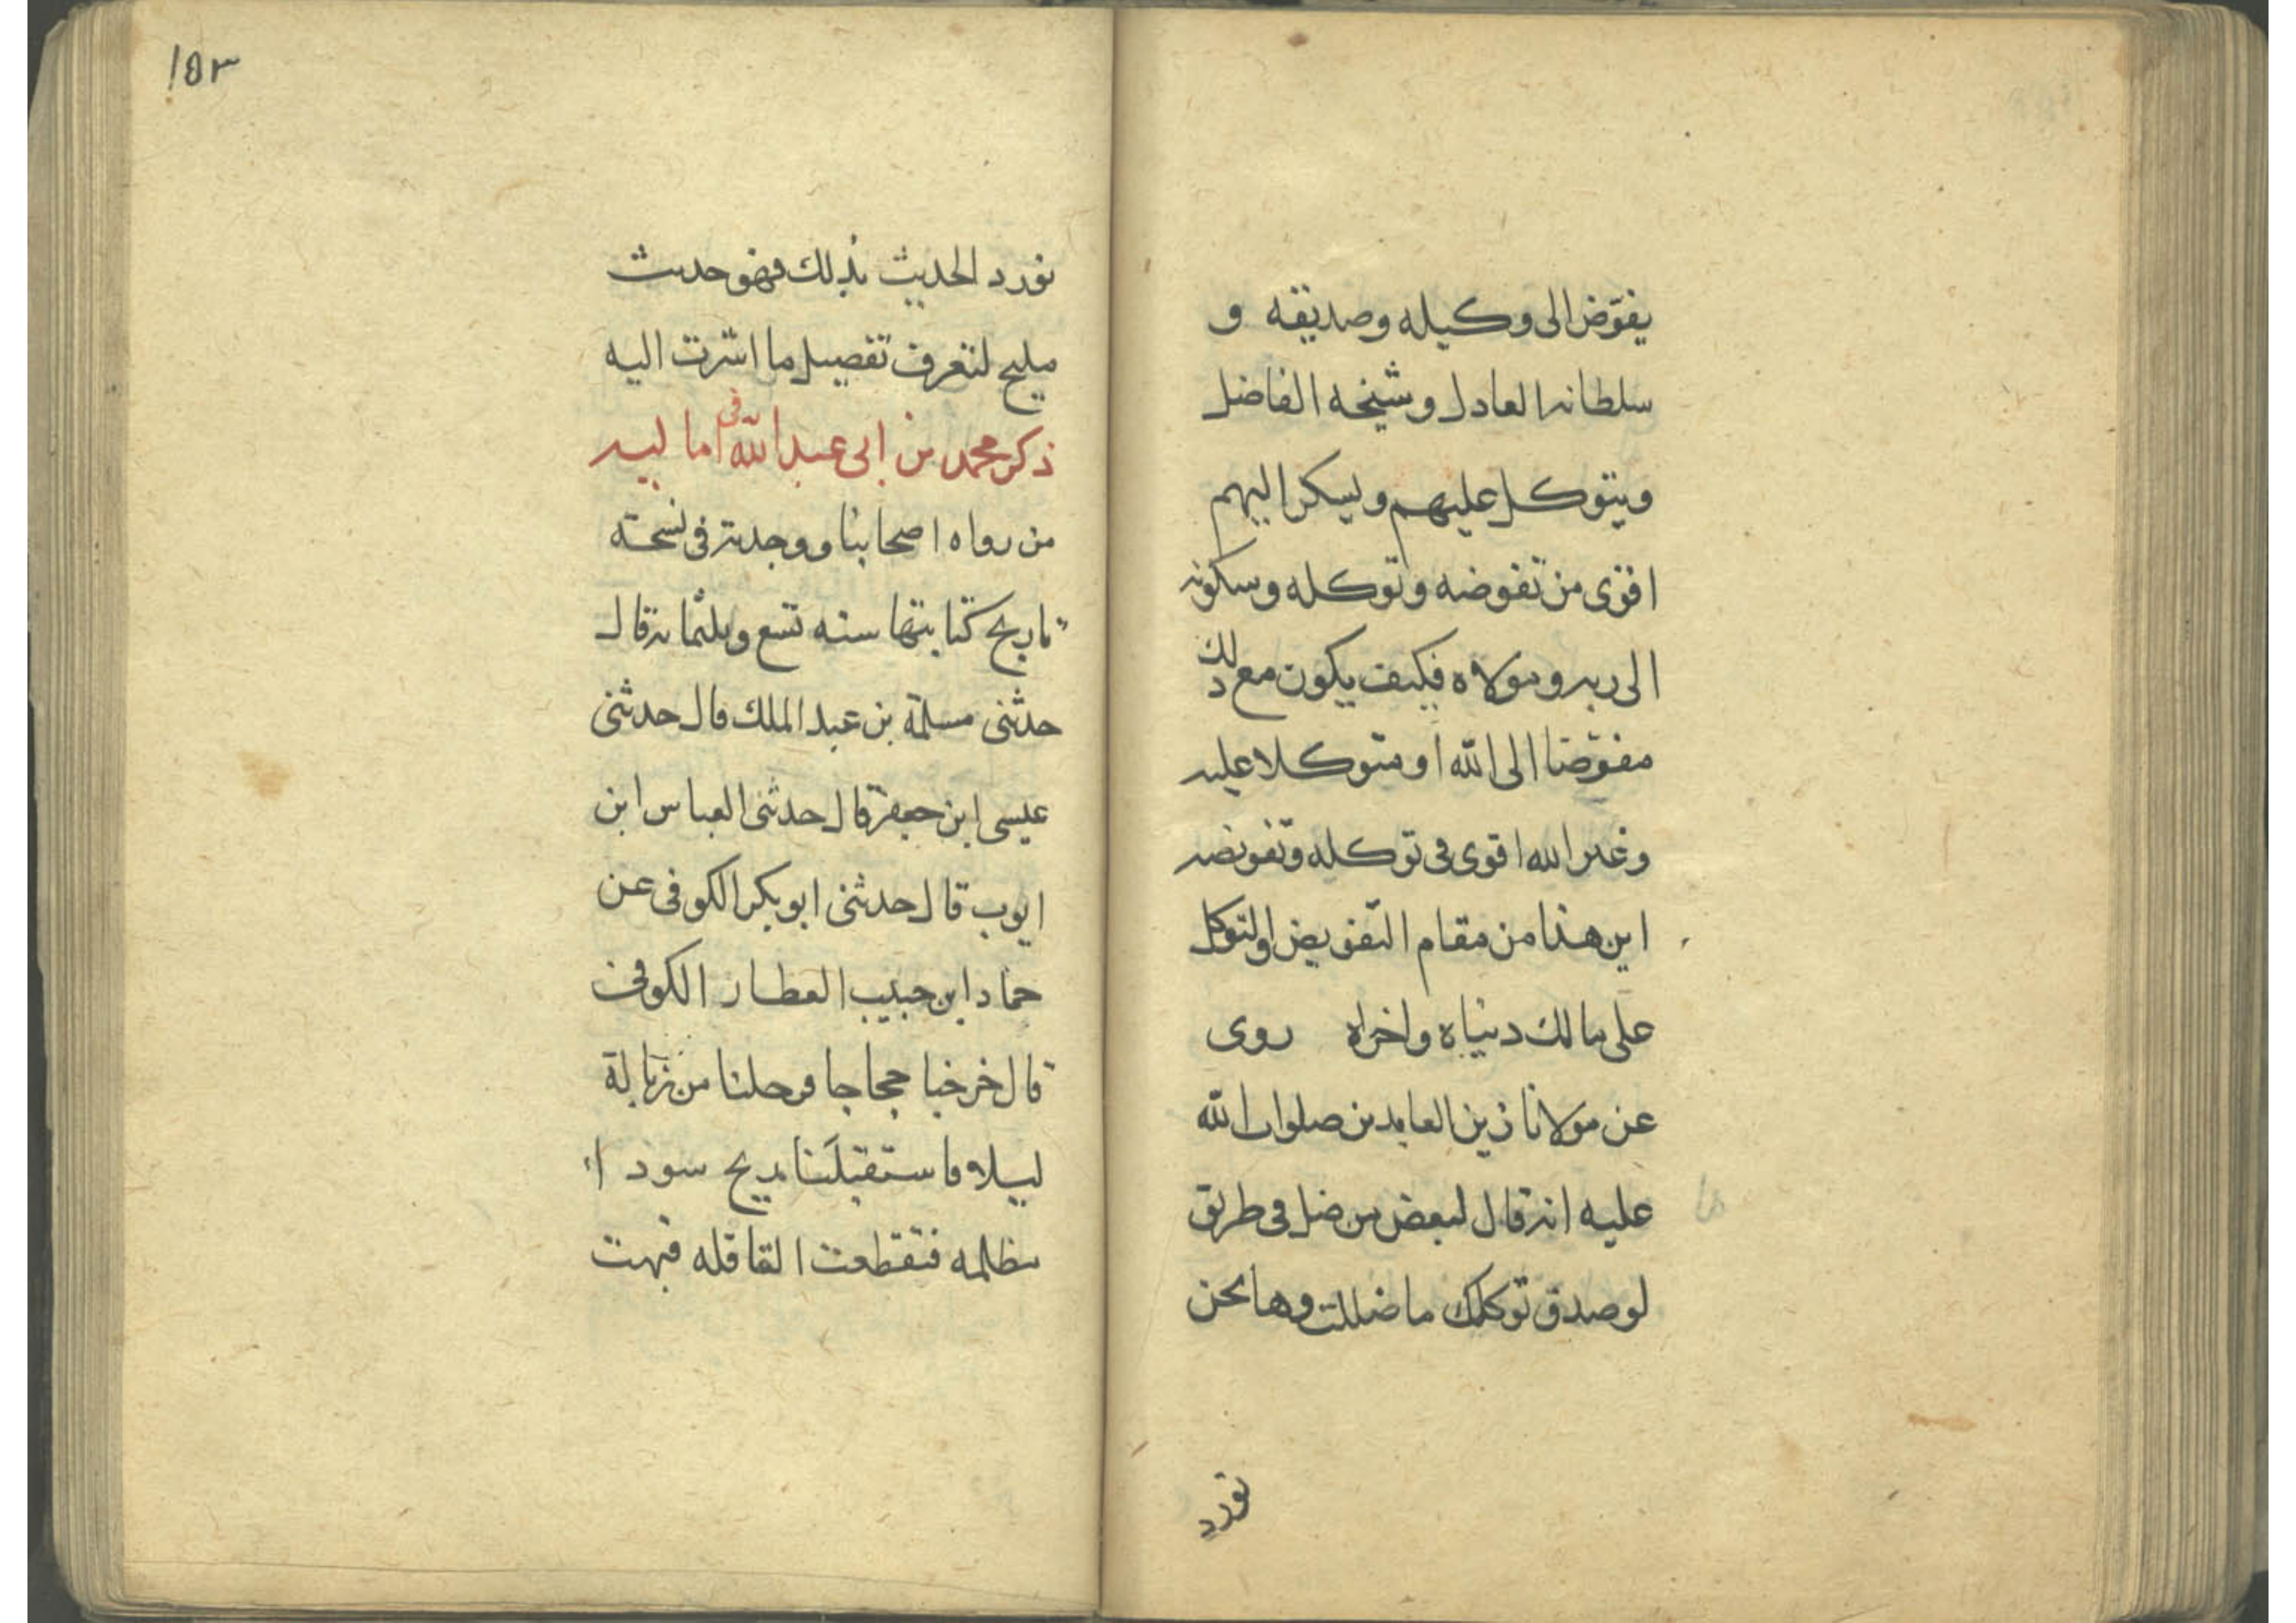 يفوّض الى وكيله وصديقه و
سلطانه العادل وشيخه الفاضل
ويتوكل عليهم ويسكن اليهم
اقوى من تفوضه وتوكله وسكونه
الى ربه ومولاه فكيف يكون مع ذلك
مفوّضا الى الله او متوكلا عليه
وغير الله اقوى فى توكله وتفويضه
اين هذا من مقام التفويض والتوكل
على مالك دنياه واخراه روى
عن مولانا زين العابدين صلوات الله
عليه انه قال لبعض من ضل فى طريق
لو صدق توكلك ما ضللت وها نحن
نورد
١٥٣
نورد الحديث بذلك فهو حديث
مليح لتعرف تفصيل ما اشرت اليه
ذكر محمد بن ابى عبد الله فى اماليه
من رواه اصحابنا ووجدته فى نسخة
تاريخ كتابتها سنه تسع وثلثمائه قال
حدثنى مسلمة بن عبد الملك قال حدثنى
عيسى ابن جعفر قال حدثنى العباس ابن
ايوب قال حدثنى ابو بكر الكوفى عن
حماد ابن حبيب العطار الكوفى
قال خرجنا حجاجا فرحلنا من زبالة
ليلا فاستقبلَتنا ريح سوداء
مظلمه فتقطعت القافله فتهت